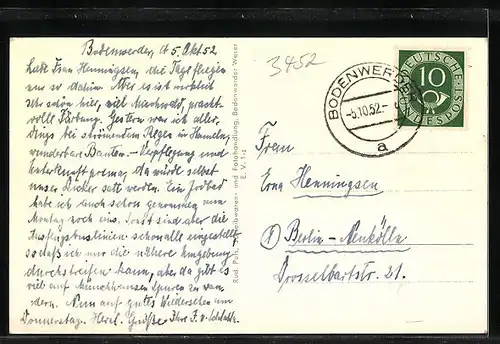 Bodenwerder, d 5. Okt 52
Liebe Frau Henningsen, die Tage fliegen
nur so dahin. Aber es ist wirklich
sehr schön hier, viel Mischwald, pracht-
volle Färbung. Gestern war ich aller
dings bei strömendem Regen in Hameln,
wunderbare Bauten. Verpflegung und
Unterkunft prima, da würde selbst
unser Kicker satt werden. Ein Jodbad
habe ich auch schon genommen, am
Montag noch eins. Sonst sind aber die
Ausflugsbuslinien schon alle eingestellt
sodaß ich nur die nähere Umgebung
durchstreifen kann, aber da gibt es
viel auf Münchhausens Spuren zu wan
dern. Nun auf gutes Wiedersehen am
Donnerstag. Herzl. Grüße Ihre F. v.
Rud. Tabakwaren- und Fotohandlung, Bodenwerder Weser
E. V. 1-z
3452
BODENWERDER
-5.10.52.-
a
DEUTSCHE
BUNDESPOST
10
Frau
Erna Henningsen
Berlin-Neukölln
Drosselbartstr. 21.